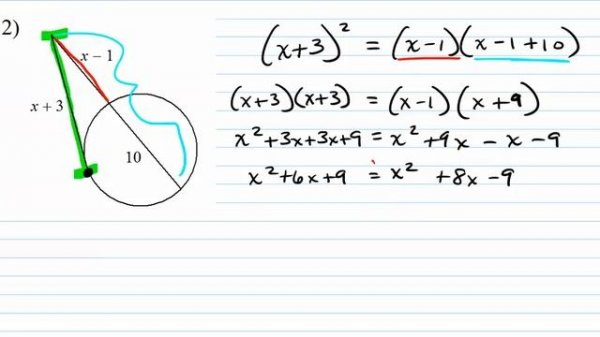 2)
x − 1
x + 3
10
(x+3)² = (x-1)(x-1+10)
(x+3)(x+3) = (x-1)(x+9)
x²+3x+3x+9 = x²+9x - x - 9
x²+6x+9 = x² +8x -9